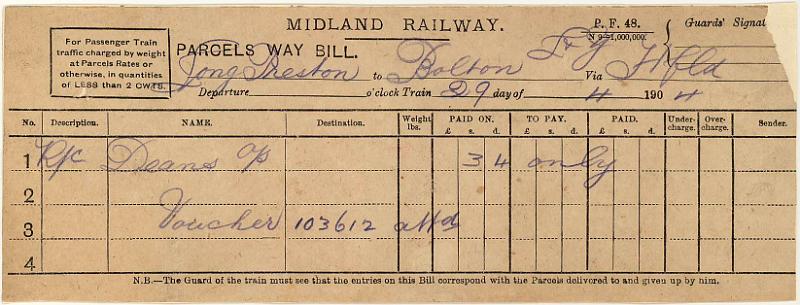 MIDLAND RAILWAY.
P. F. 48.
N 9—1,000,000.
Guards' Signat
For Passenger Train
traffic charged by weight
at Parcels Rates or
otherwise, in quantities
of LESS than 2 CWTS.
PARCELS WAY BILL.
Long Preston to Bolton L & Y Via Hfld
Departure o'clock Train 29 day of 4 1904
No. Description. NAME. Destination. Weight lbs. PAID ON. TO PAY. PAID. Under-charge. Over-charge. Sender.
£ s. d. £ s. d. £ s. d.
1 Deans 3 4 only
2
3 Voucher 103612 attd
4
N.B.—The Guard of the train must see that the entries on this Bill correspond with the Parcels delivered to and given up by him.